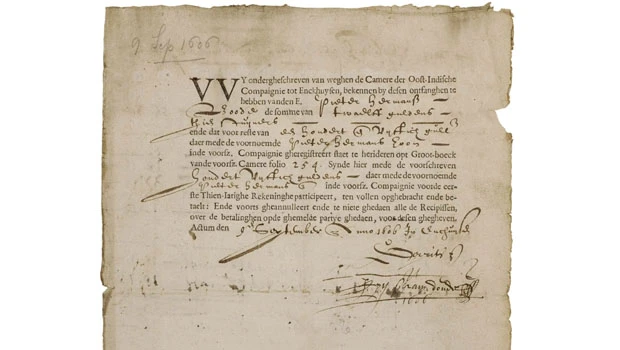 9 Sep 1606
WY ondergheschreven van weghen de Camere der Oost-Indische
Compaignie tot Enckhuysen, bekennen by desen ontfanghen te
hebben vanden E. Pieter Hermansz
de somme van twaelff guldens
ende dat voor reste van een hondert vyftich guld
daer mede de voornoemde Pieter Hermansz
inde voorsz. Compaignie gheregistreert staet te herideren opt Groot-boeck
vande voorsz. Camere folio 254. Synde hier mede de voorschreven
hondert vyftich guldens daer mede de voornoemde
Pieter Hermansz inde voorsz. Compaignie voorde eer-
ste Thien-Iarighe Rekeninghe participeert, ten vollen opghebracht ende be-
taelt: Ende voorts gheannulleert ende te niete ghedaen alle de Recipissen,
over de betalinghen opde ghemelde partye ghedaen, voor desen ghegheven.
Actum den 9 September Anno 1606 In Enchuysen
1606